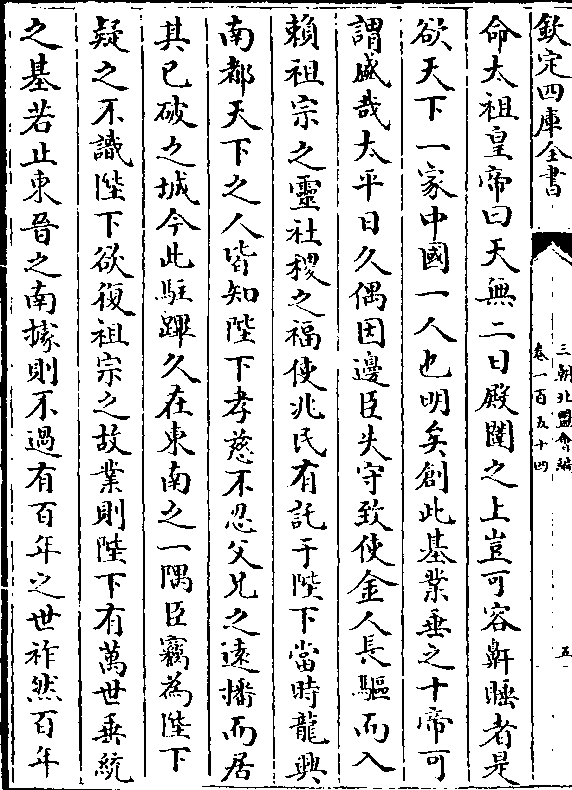 欽定四庫全書
三朝北盟會編
卷一百五十四
五
命太祖皇帝曰天無二日殿闥之上豈可容鼾睡者是
欲天下一家中國一人也明矣創此基業垂之十帝可
謂盛哉太平日久偶因邊臣失守致使金人長驅而入
賴祖宗之靈社稷之福使兆民有託于陛下當時龍興
南都天下之人皆知陛下孝慈不忍父兄之遠播而居
其已破之城今此駐蹕久在東南之一隅臣竊為陛下
疑之不識陛下欲復祖宗之故業則陛下有萬世垂統
之基若止東晉之南據則不過有百年之世祚然百年